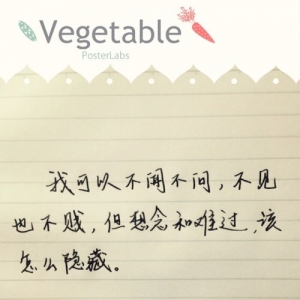 Vegetable
PosterLabs
我可以不闻不问，不见
也不贱，但想念和难过，该
怎么隐藏。